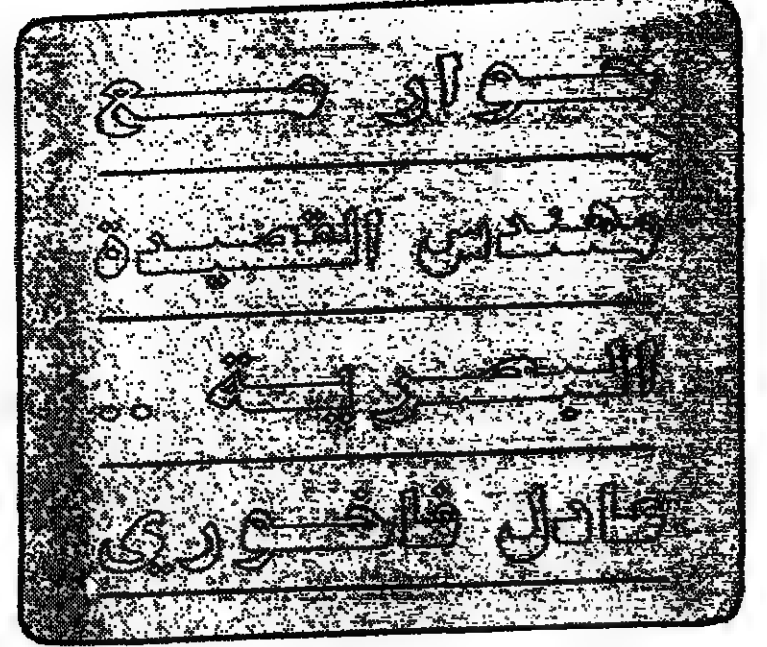 حوار مع
مهندس القصيدة
البصرية ..
عادل فاخوري